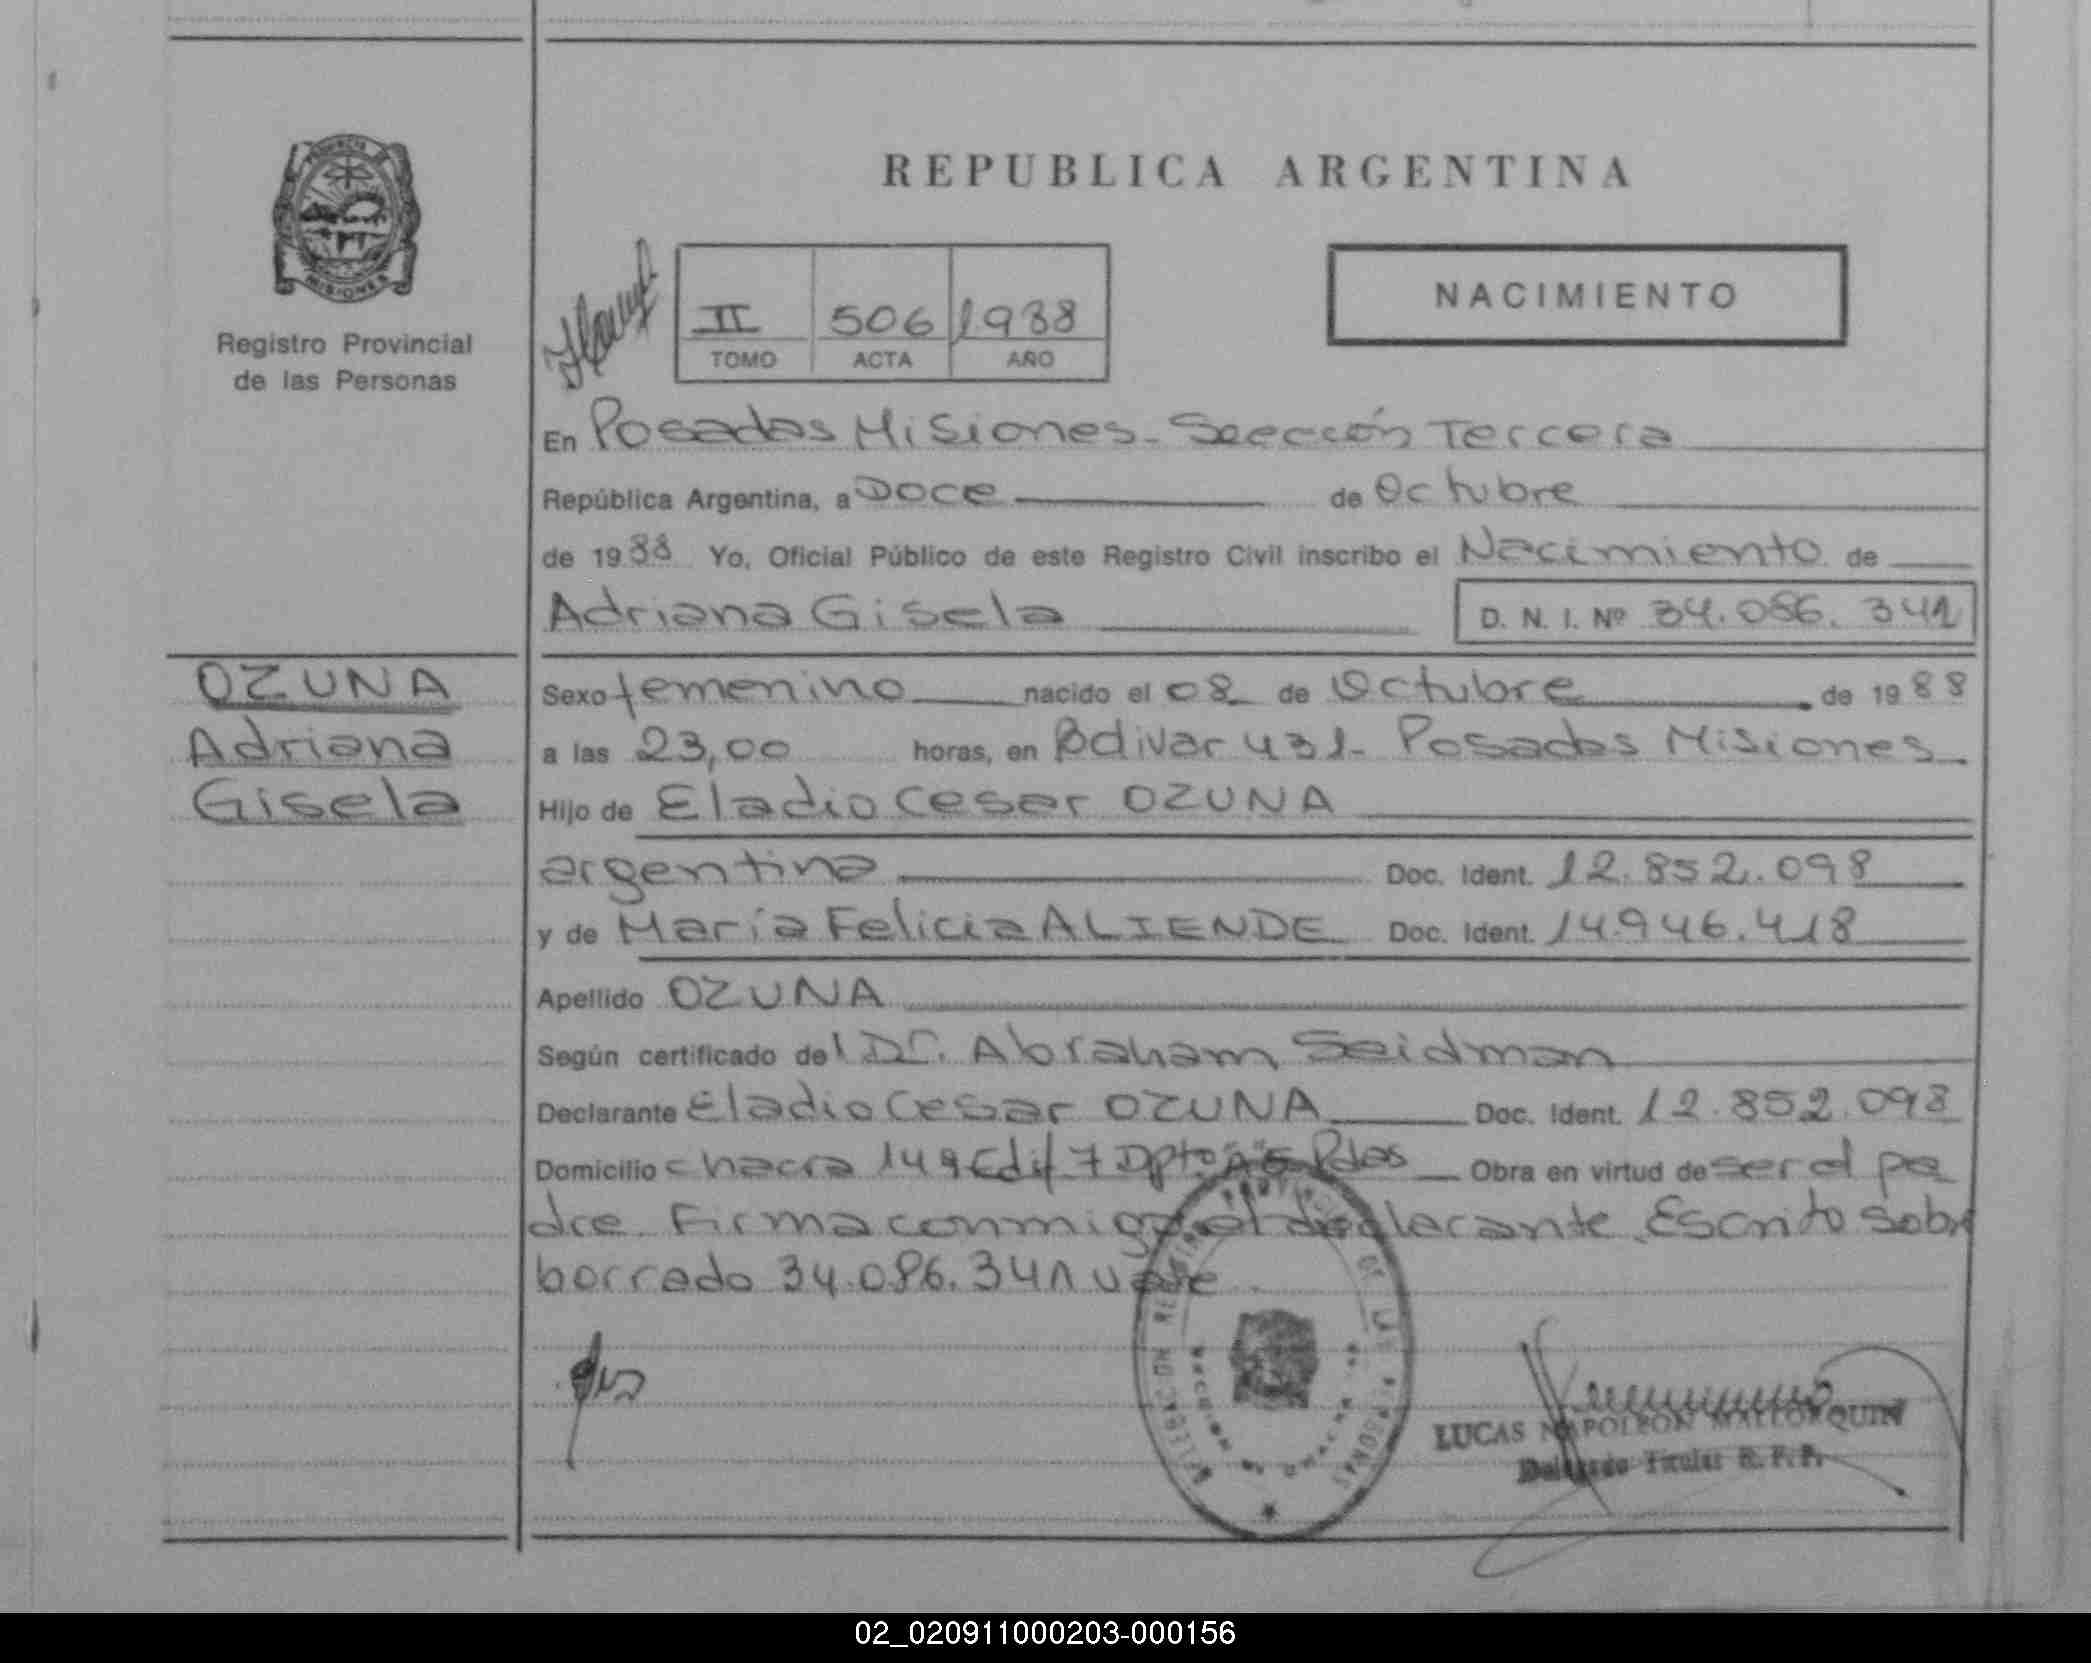 REPUBLICA ARGENTINA
PROVINCIA DE
MISIONES
Registro Provincial
de las Personas
II 506 1988
TOMO ACTA AÑO
NACIMIENTO
En Posadas Misiones - Sección Tercera
República Argentina, a Doce de Octubre
de 1988 Yo, Oficial Público de este Registro Civil inscribo el Nacimiento de
Adriana Gisela D. N. I. Nº 34.086.341
OZUNA
Adriana
Gisela
Sexo femenino nacido el 08 de Octubre de 1988
a las 23,00 horas, en Bolivar 431 - Posadas Misiones
Hijo de Eladio Cesar OZUNA
argentina Doc. Ident. 12.852.098
y de María Felicia ALIENDE Doc. Ident. 14.946.418
Apellido OZUNA
Según certificado del Dr. Abraham Seidman
Declarante Eladio Cesar OZUNA Doc. Ident. 12.852.098
Domicilio chacra 149 Edif 7 Dpto Pdas Obra en virtud de ser el pa
dre. Firma conmigo el declarante. Escrito sobre
borrado 34.086.341 vale
LUCAS NAPOLEON MALLORQUIN
Delegado Titular R. P. P.
02_020911000203-000156